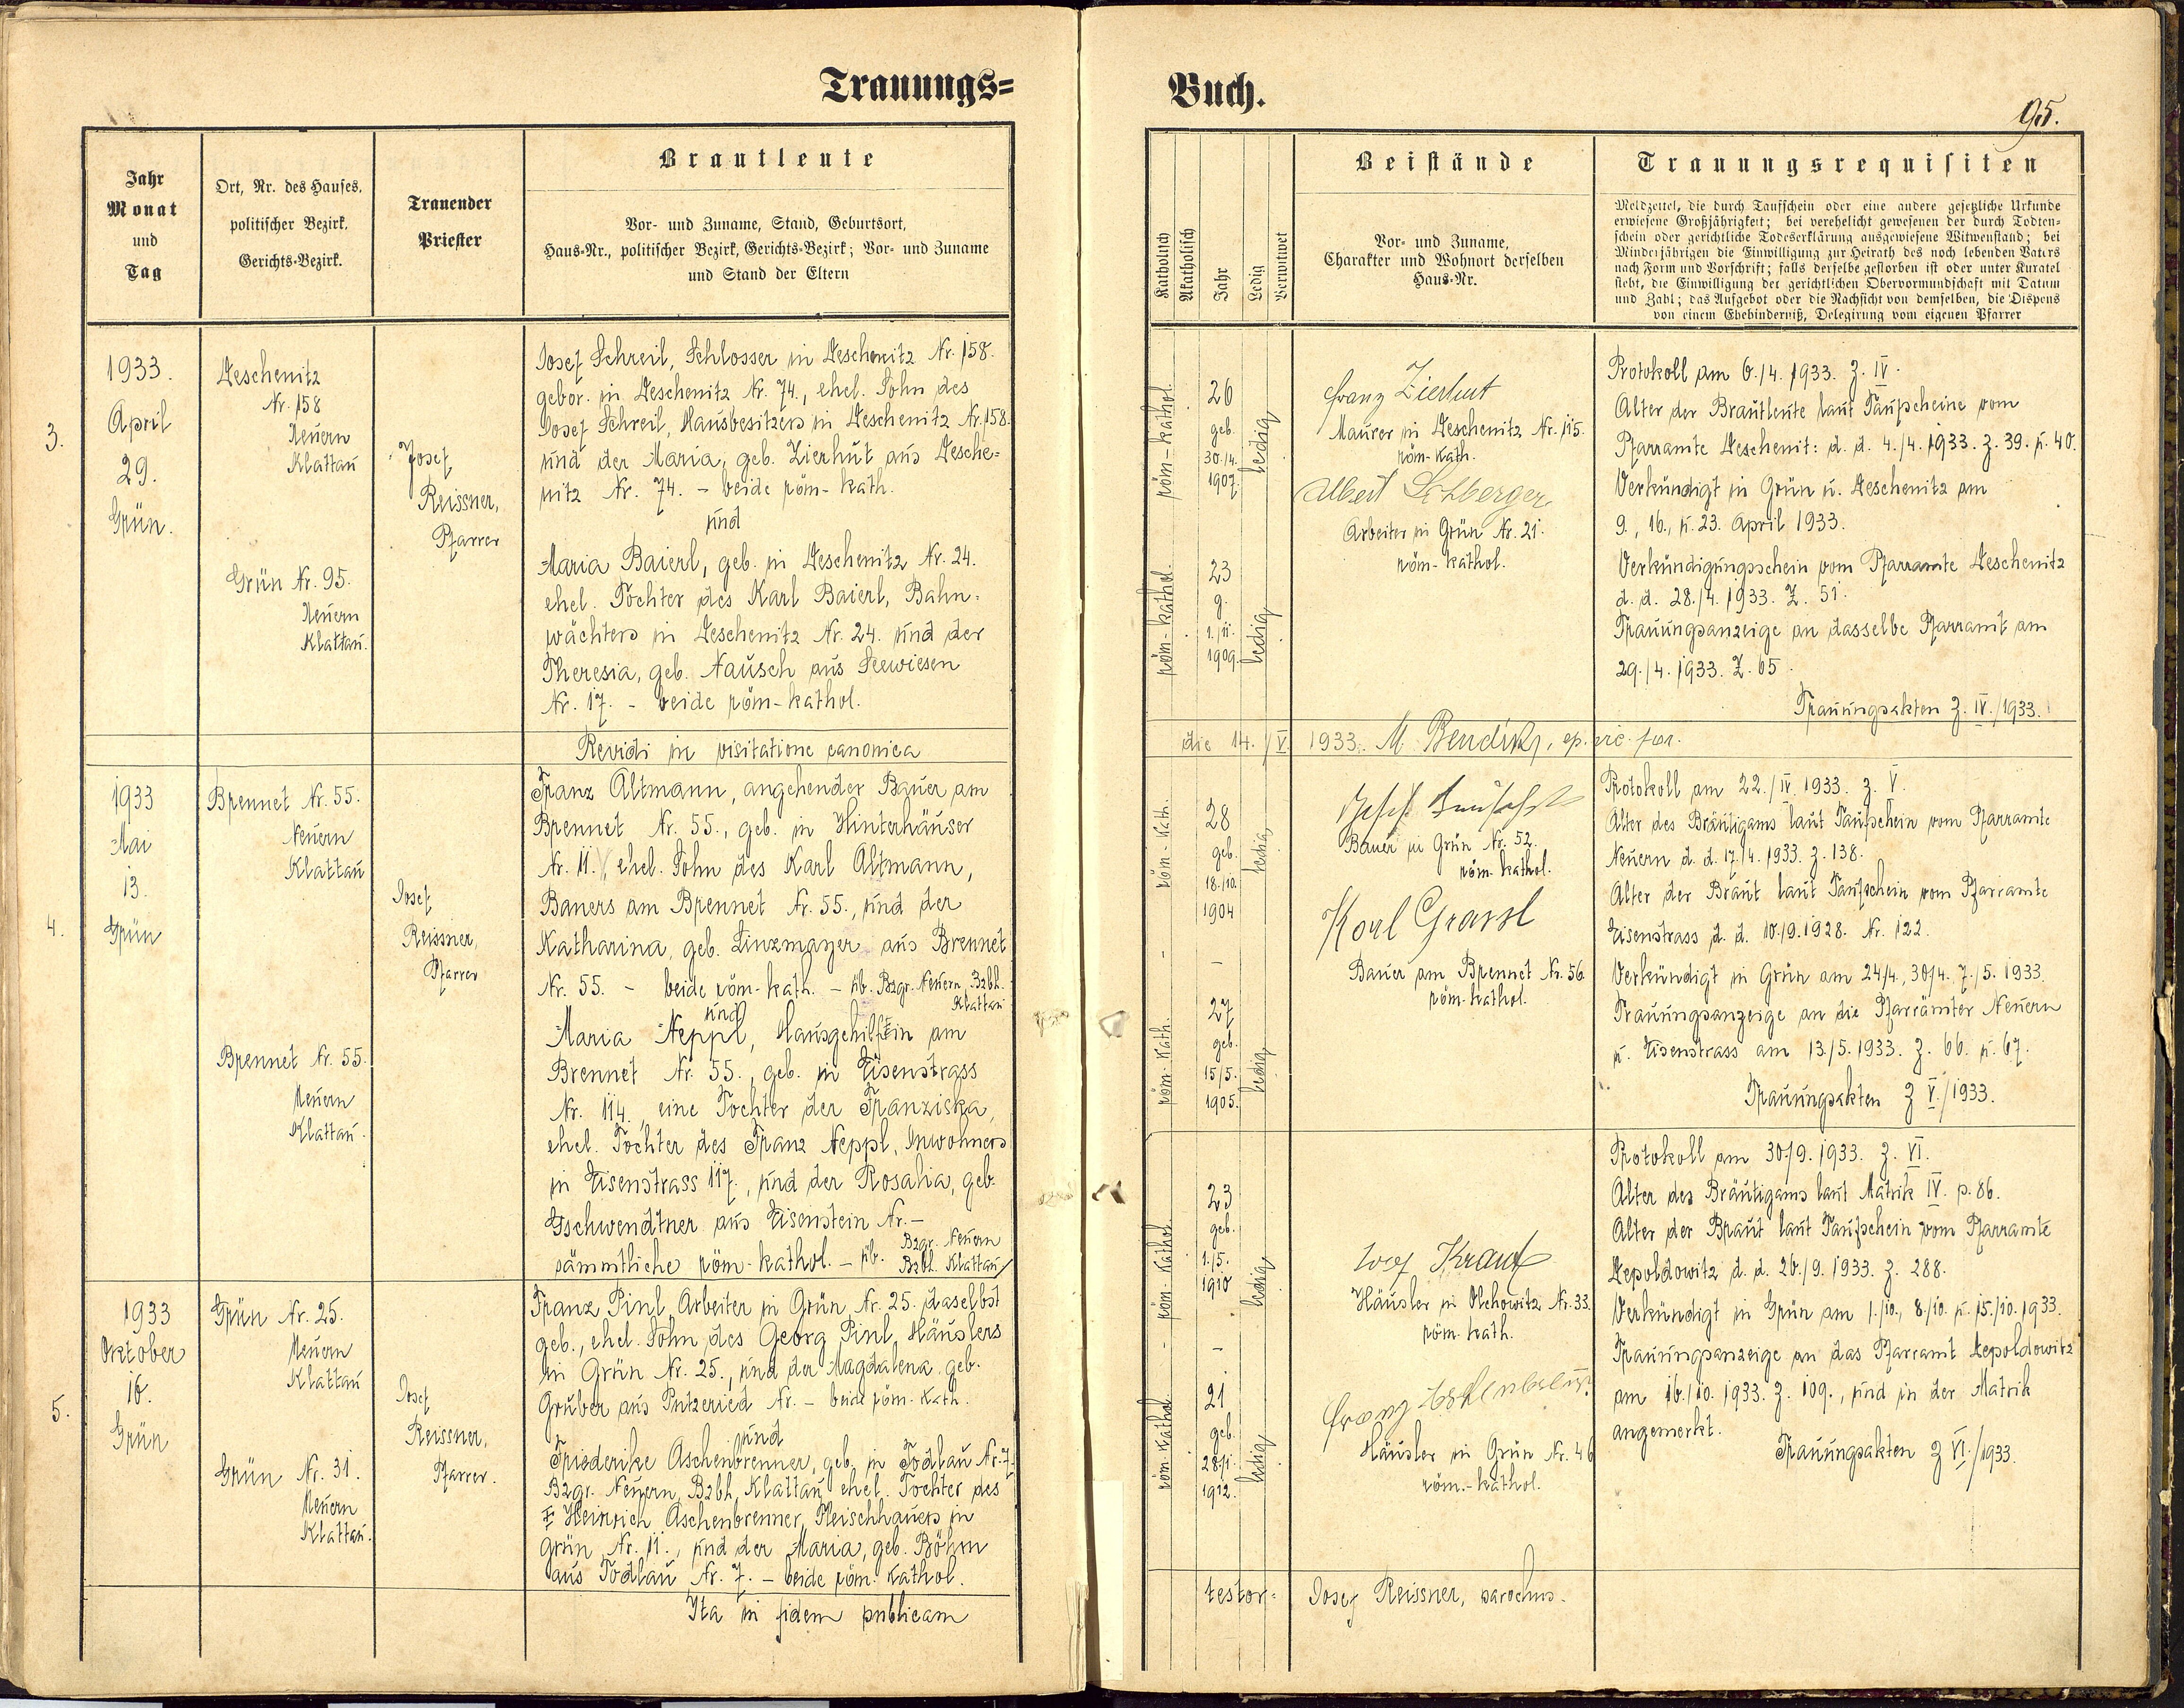 Trauungs=
Buch.
95.
Jahr
Monat
und
Tag
Ort, Nr. des Hauses,
politischer Bezirk,
Gerichts-Bezirk.
Trauender
Priester
Brautleute
Vor- und Zuname, Stand, Geburtsort,
Haus-Nr., politischer Bezirk, Gerichts-Bezirk; Vor- und Zuname
und Stand der Eltern
Katholisch
Akatholisch
Jahr
Ledig
Verwitwet
Beistände
Vor- und Zuname,
Charakter und Wohnort derselben
Haus-Nr.
Trauungsrequisiten
Meldzettel, die durch Taufschein oder eine andere gesetzliche Urkunde
erwiesene Großjährigkeit; bei verehelicht gewesenen der durch Todten-
schein oder gerichtliche Todeserklärung ausgewiesene Witwenstand; bei
Minderjährigen die Einwilligung zur Heirath des noch lebenden Vaters
nach Form und Vorschrift; falls derselbe gestorben ist oder unter Kuratel
steht, die Einwilligung der gerichtlichen Obervormundschaft mit Datum
und Zahl; das Aufgebot oder die Nachsicht von demselben, die Dispens
von einem Ehebinderniß, Delegirung vom eigenen Pfarrer
3.
1933.
April
29.
Grün.
Deschenitz
Nr. 158
Neuern
Klattau
Grün Nr. 95.
Neuern
Klattau.
Josef
Reissner,
Pfarrer
Josef Schreil, Schlosser in Deschenitz Nr. 158.
gebor. in Deschenitz Nr. 74., ehel. Sohn des
Josef Schreil, Hausbesitzers in Deschenitz Nr. 158.
und der Maria, geb. Zierhut aus Desche=
nitz Nr. 74. - beide röm-kath.
und
Maria Baierl, geb. in Deschenitz Nr. 24.
ehel. Tochter des Karl Baierl, Bahn=
wächters in Deschenitz Nr. 24. und der
Theresia, geb. Nausch aus Seewiesen
Nr. 17. - beide röm-kathol.
röm-kathol.
26
geb.
30./4.
1907.
ledig
röm-kathol.
23
g.
1./11.
1909.
ledig
Franz Zierhut
Maurer in Deschenitz Nr. 115.
röm-kath.
Albert
Arbeiter in Grün Nr. 21.
röm-kathol.
Protokoll am 6./4. 1933. Z. IV.
Alter der Brautleute laut Taufscheine vom
Pfarramte Deschenit: d. d. 4./4. 1933. Z. 39. u. 40.
Verkündigt in Grün u. Deschenitz am
9., 16., u. 23. April 1933.
Verkündigungsschein vom Pfarramte Deschenitz
d. d. 28./4. 1933. Z. 51.
Trauungsanzeige an dasselbe Pfarramt am
29./4. 1933. Z. 65.
Trauungsakten Z. IV./1933.
Revidi in visitatione canonica
die 14./V. 1933. M. ep. vic. for.
4.
1933
Mai
13.
Grün
Brennet Nr. 55.
Neuern
Klattau
Brennet Nr. 55.
Neuern
Klattau.
Josef
Reissner,
Pfarrer
Franz Altmann, angehender Bauer am
Brennet Nr. 55., geb. in Hinterhäuser
Nr. 11., ehel. Sohn des Karl Altmann,
Bauers am Brennet Nr. 55., und der
Katharina, geb. Linzmayer aus Brennet
Nr. 55. - beide röm-kath. - üb. Bzgr. Neuern, Bzbh.
Klattau
und
Maria Neppl, Hausgehilfin am
Brennet Nr. 55., geb. in Eisenstrass
Nr. 114., eine Tochter der Franziska,
ehel. Tochter des Franz Neppl, Inwohners
in Eisenstrass 117., und der Rosalia, geb.
Gschwendtner aus Eisenstein Nr. -
sämmtliche röm-kathol. - üb. Bzgr. Neuern
Bzbh. Klattau
röm-kath.
28
geb.
18./10.
1904
ledig
röm-kath.
27
geb.
15/5.
1905.
ledig
Bauer in Grün Nr. 52.
röm-kathol.
Karl Grassl
Bauer am Brennet Nr. 56.
röm-kathol.
Protokoll am 22./IV. 1933. Z. V.
Alter des Bräutigams laut Taufschein vom Pfarramte
Neuern d. d. 17./4. 1933. Z. 138.
Alter der Braut laut Taufschein vom Pfarramte
Eisenstrass d. d. 10./9. 1928. Nr. 122.
Verkündigt in Grün am 24/4., 30/4. 7./5. 1933.
Trauungsanzeige an die Pfarrämter Neuern
u. Eisenstrass am 13./5. 1933. Z. 66. u. 67.
Trauungsakten Z V./1933.
5.
1933
Oktober
16.
Grün
Grün Nr. 25.
Neuern
Klattau
Grün Nr. 31.
Neuern
Klattau.
Josef
Reissner,
Pfarrer.
Franz Pinl, Arbeiter in Grün Nr. 25. daselbst
geb., ehel. Sohn des Georg Pinl, Häuslers
in Grün Nr. 25., und der Magdalena geb.
Gruber aus Putzeried Nr. - beide röm. kath.
und
Friederike Aschenbrenner, geb. in Todlau Nr. 7.
Bzgr. Neuern, Bzbh. Klattau, ehel. Tochter des
Heinrich Aschenbrenner, Fleischhauers in
Grün Nr. 11., und der Maria, geb. Böhm
aus Todlau Nr. 7. - beide röm. kathol.
röm-kathol.
23
geb.
1./5.
1910
ledig
röm-kathol.
21
geb.
28/1.
1912.
ledig
Josef
Häusler in Olchowitz Nr. 33.
röm. kath.
Franz
Häusler in Grün Nr. 46
röm.-kathol.
Protokoll am 30./9. 1933. Z. VI.
Alter des Bräutigams laut Matrik IV. p. 86.
Alter der Braut laut Taufschein vom Pfarramte
Depoldowitz d. d. 26./9. 1933. Z. 288.
Verkündigt in Grün am 1./10., 8./10. u. 15./10. 1933.
Trauungsanzeige an das Pfarramt Depoldowitz
am 16./10. 1933. Z. 109., und in der Matrik
angemerkt.
Trauungsakten Z VI./1933.
Ita in fidem publicam
testor: Josef Reissner, parochus.